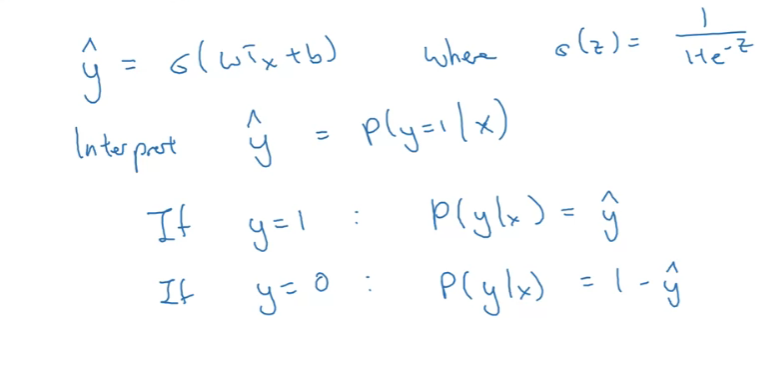 ŷ = σ(wᵀx + b) where σ(z) = 1/(1+e^-z)
Interpret ŷ = p(y=1|x)
If y=1 : p(y|x) = ŷ
If y=0 : p(y|x) = 1 - ŷ